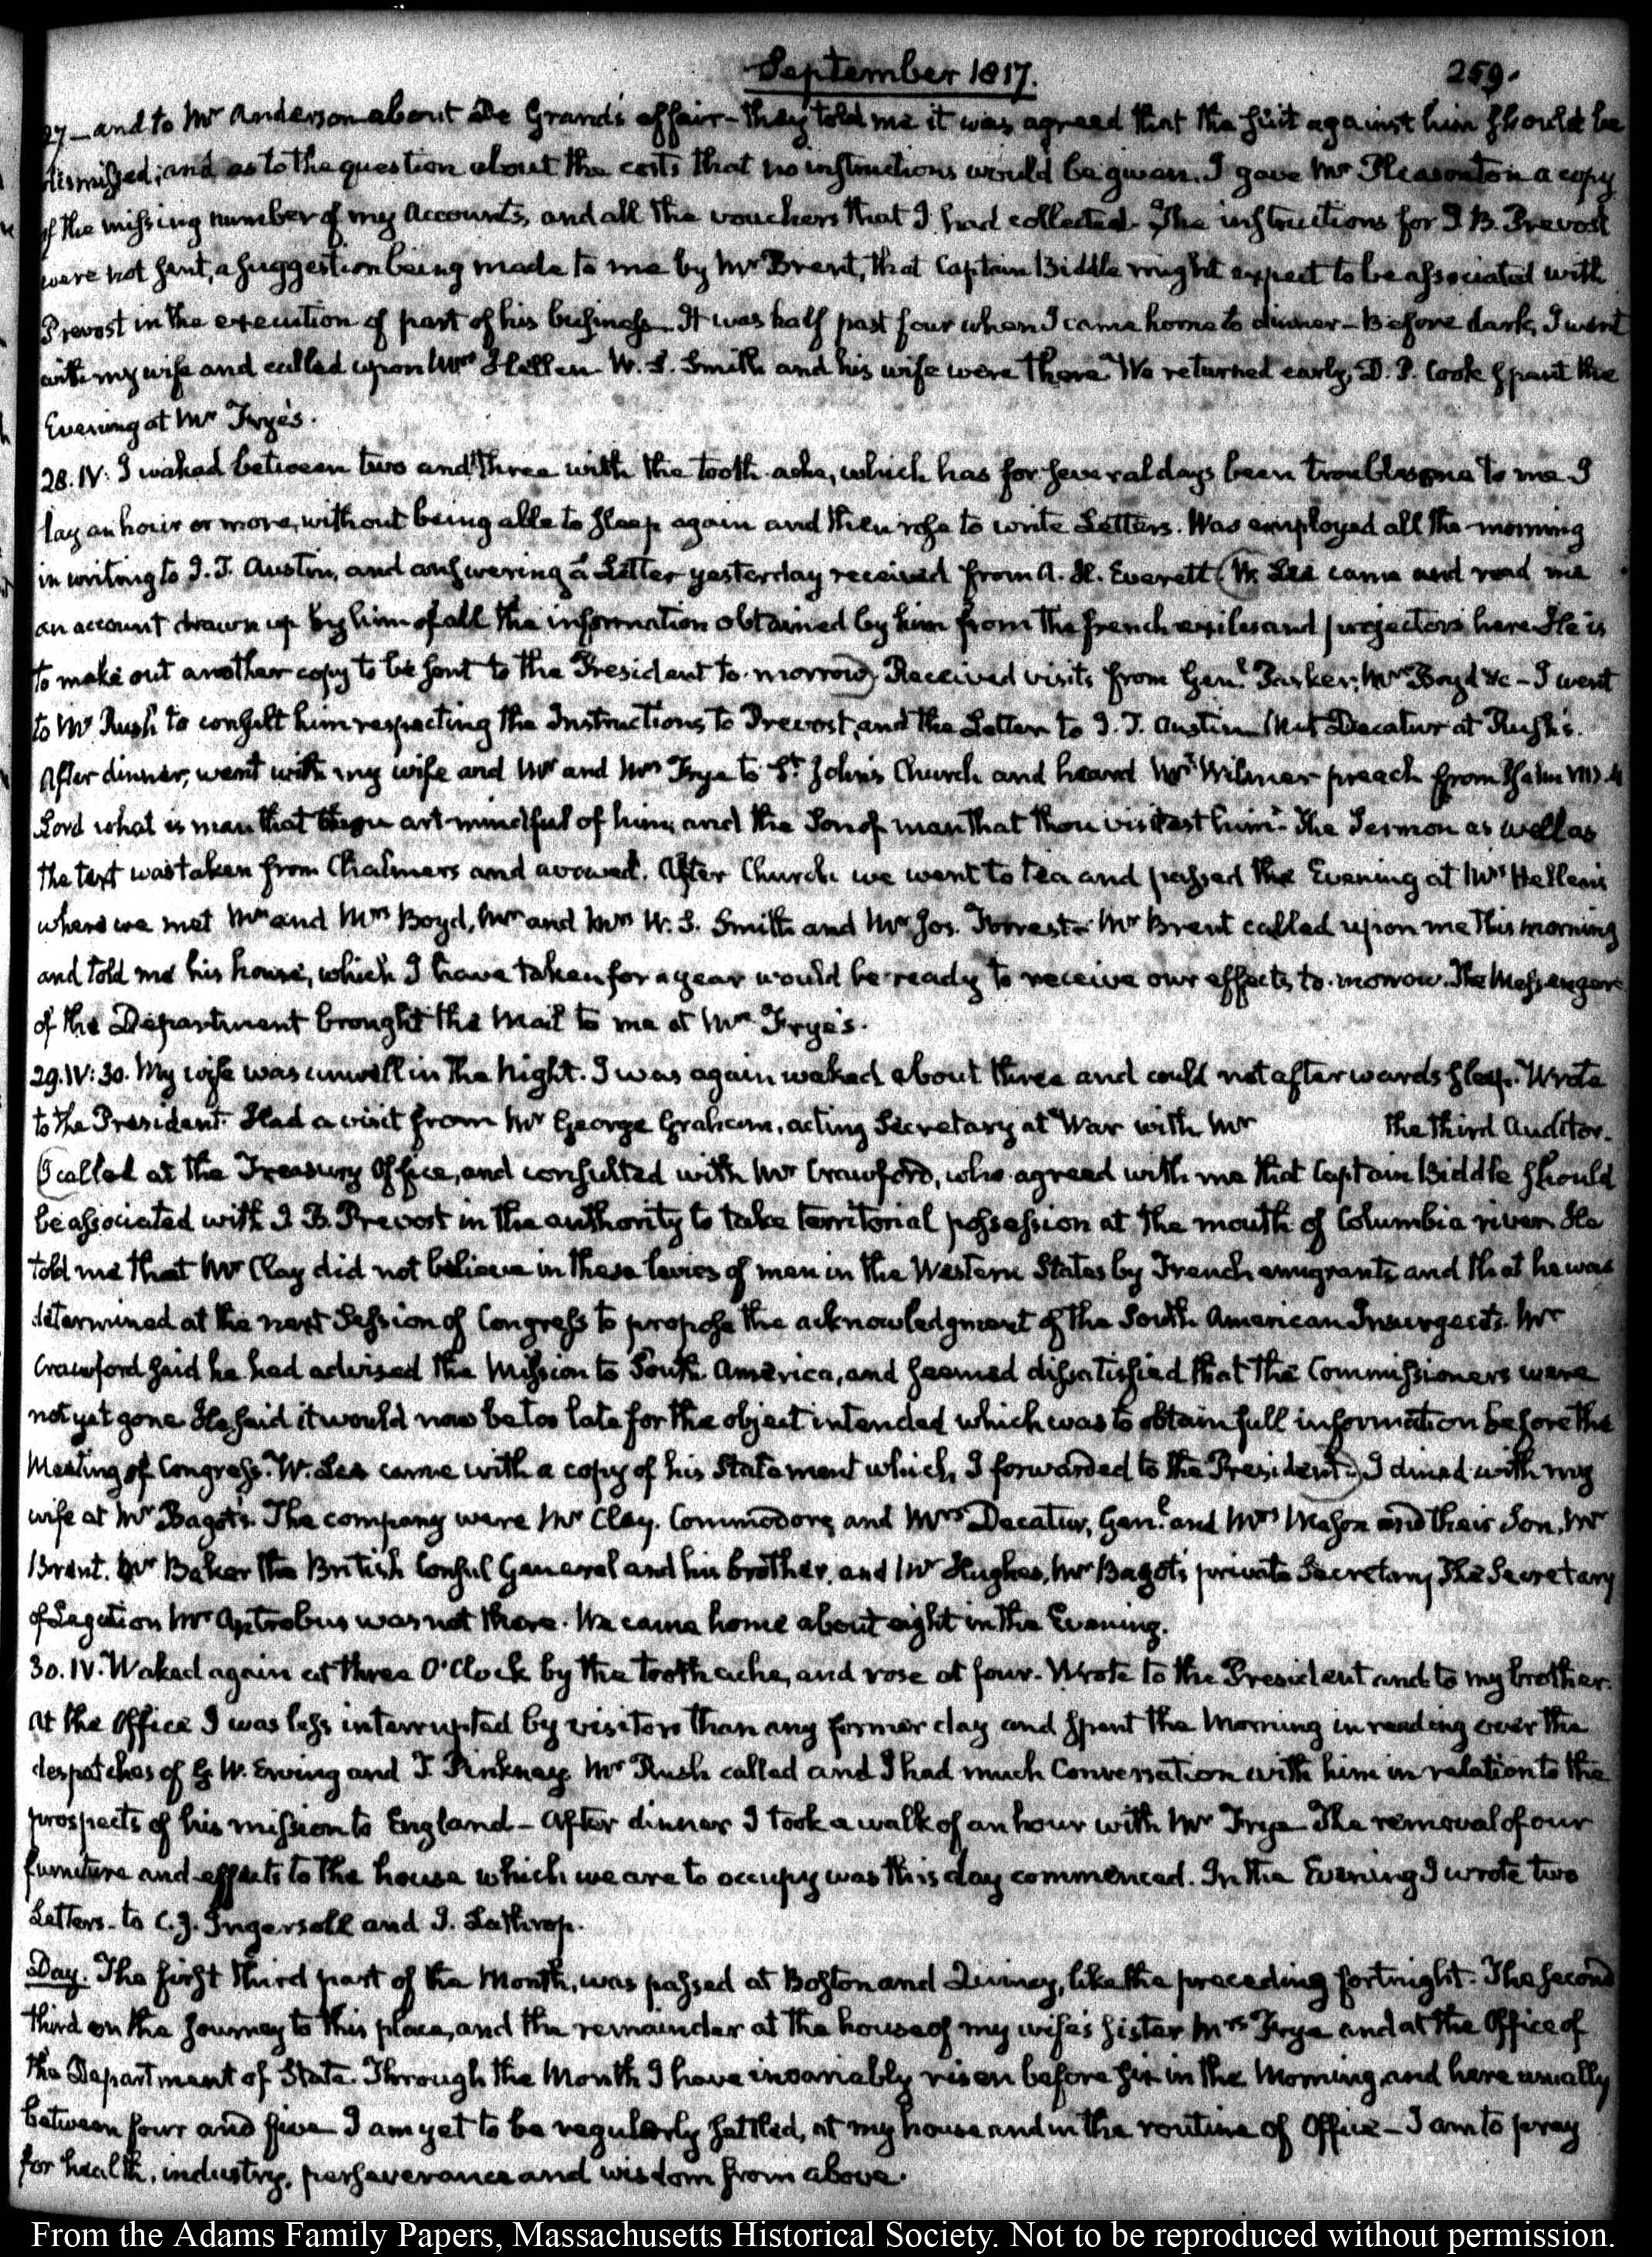 September 1817.
259.
27 — and to Mr Anderson about De Grand's affair — they told me it was agreed that the suit against him should be
dismissed; and as to the question about the costs that no instructions would be given. I gave Mr Pleasonton a copy
of the missing number of my Accounts, and all the vouchers that I had collected. The instructions for J. B. Prevost
were not sent, a suggestion being made to me by Mr Brent, that Captain Biddle might expect to be associated with
Prevost in the execution of part of his business. It was half past four when I came home to dinner — Before dark, I went
with my wife and called upon Mrs Hellen. W. S. Smith and his wife were there. We returned early, D. P. Cook spent the
Evening at Mr Frye's.
28. IV: I waked between two and three with the tooth-ache, which has for several days been troublesome to me. I
lay an hour or more, without being able to sleep again and then rose to write Letters. Was employed all the morning
in writing to J. T. Austin, and answering a Letter yesterday received from A. H. Everett (W. Lee came and read me
an account drawn up by him of all the information obtained by him from the french exiles and projectors here. He is
to make out another copy to be sent to the President to-morrow) Received visits from Genl. Parker, Mr Boyd &c — I went
to Mr Rush to consult him respecting the Instructions to Prevost, and the Letter to J. T. Austin. Met Decatur at Rush's.
After dinner, went with my wife and Mr and Mrs Frye to St. John's Church and heard Mr Wilmer preach from Psalm VIII. 4
Lord what is man that thou art mindful of him, and the Son of man that thou visitest him. The Sermon as well as
the text was taken from Chalmers and avowed. After Church we went to tea and passed the Evening at Mrs Hellen's
where we met Mr and Mrs Boyd, Mr and Mrs W. S. Smith and Mr Jos. Forrest. Mr Brent called upon me this morning
and told me his house, which I have taken for a year would be ready to receive our effects to-morrow. The Messenger
of the Department brought the Mail to me at Mr Frye's.
29. IV:30. My wife was unwell in the Night. I was again waked about three and could not afterwards sleep. Wrote
to the President. Had a visit from Mr George Graham, acting Secretary at War with Mr the third Auditor.
(I called at the Treasury Office, and consulted with Mr Crawford, who agreed with me that Captain Biddle should
be associated with J. B. Prevost in the authority to take territorial possession at the mouth of Columbia river. He
told me that Mr Clay did not believe in these levies of men in the Western States by French emigrants and that he was
determined at the next Session of Congress to propose the acknowledgment of the South American Insurgents. Mr
Crawford said he had advised the Mission to South America, and seemed dissatisfied that the Commissioners were
not yet gone. He said it would now be too late for the object intended which was to obtain full information before the
Meeting of Congress. W. Lee came with a copy of his Statement which, I forwarded to the President.) I dined with my
wife at Mr Bagot's. The company were Mr Clay, Commodore and Mrs Decatur, Genl. and Mrs Mason and their Son, Mr
Brent, Mr Baker the British Consul General and his brother, and Mr Hughes, Mr Bagot's private Secretary. The Secretary
of Legation Mr Antrobus was not there. We came home about eight in the Evening.
30. IV. Waked again at three O'Clock by the tooth ache, and rose at four. Wrote to the President and to my brother.
At the Office I was less interrupted by visitors than any former day and spent the Morning in reading over the
despatches of G. W. Erving and T. Pinkney. Mr Rush called and I had much Conversation with him in relation to the
prospects of his mission to England — After dinner I took a walk of an hour with Mr Frye. The removal of our
furniture and effects to the house which we are to occupy was this day commenced. In the Evening I wrote two
Letters. to C. J. Ingersoll and J. Lathrop.
Day. The first third part of the Month, was passed at Boston and Quincy, like the preceding fortnight. The second
third on the Journey to this place, and the remainder at the house of my wife's Sister Mrs Frye and at the Office of
the Department of State. Through the Month I have invariably risen before six in the Morning and here usually
between four and five. I am yet to be regularly settled, at my house and in the routine of Office — I am to pray
for health, industry, perseverance and wisdom from above.
From the Adams Family Papers, Massachusetts Historical Society. Not to be reproduced without permission.